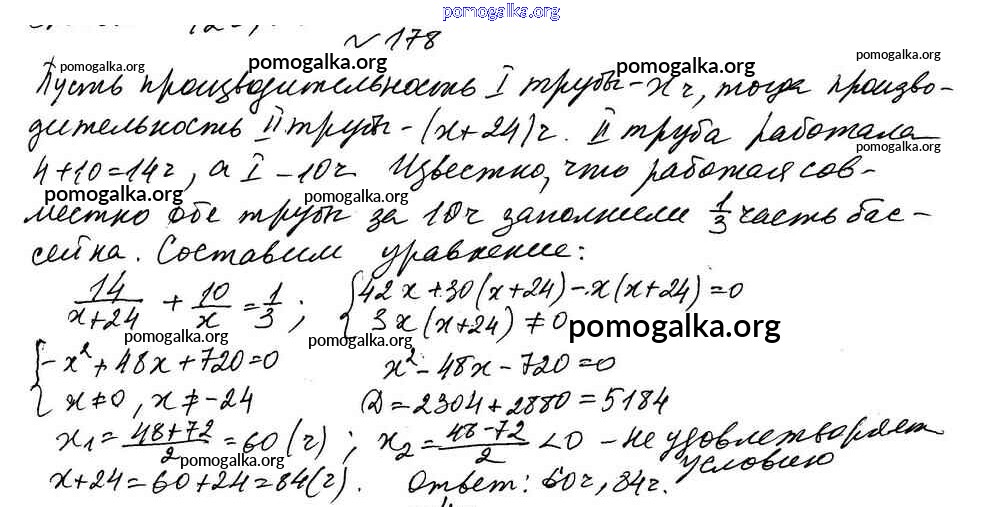 pomogalka.org
№ 178
pomogalka.org pomogalka.org pomogalka.org pomogalka.org
Пусть производительность I трубы - x ч, тогда произво-
дительность II трубы - (x + 24) ч. II труба работала
pomogalka.org
4 + 10 = 14 ч, а I - 10 ч. Известно, что работая сов-
pomogalka.org pomogalka.org
местно обе трубы за 10 ч заполнили 1/3 часть бас-
сейна. Составим уравнение:
14/(x+24) + 10/x = 1/3; { 42x + 30(x+24) - x(x+24) = 0
3x(x+24) ≠ 0
pomogalka.org pomogalka.org pomogalka.org
{ -x² + 48x + 720 = 0 x² - 48x - 720 = 0
x ≠ 0, x ≠ -24 D = 2304 + 2880 = 5184
x₁ = (48+72)/2 = 60 (ч); x₂ = (48-72)/2 < 0 - не удовлетворяет
условию
pomogalka.org
x + 24 = 60 + 24 = 84 (ч). Ответ: 60 ч, 84 ч.